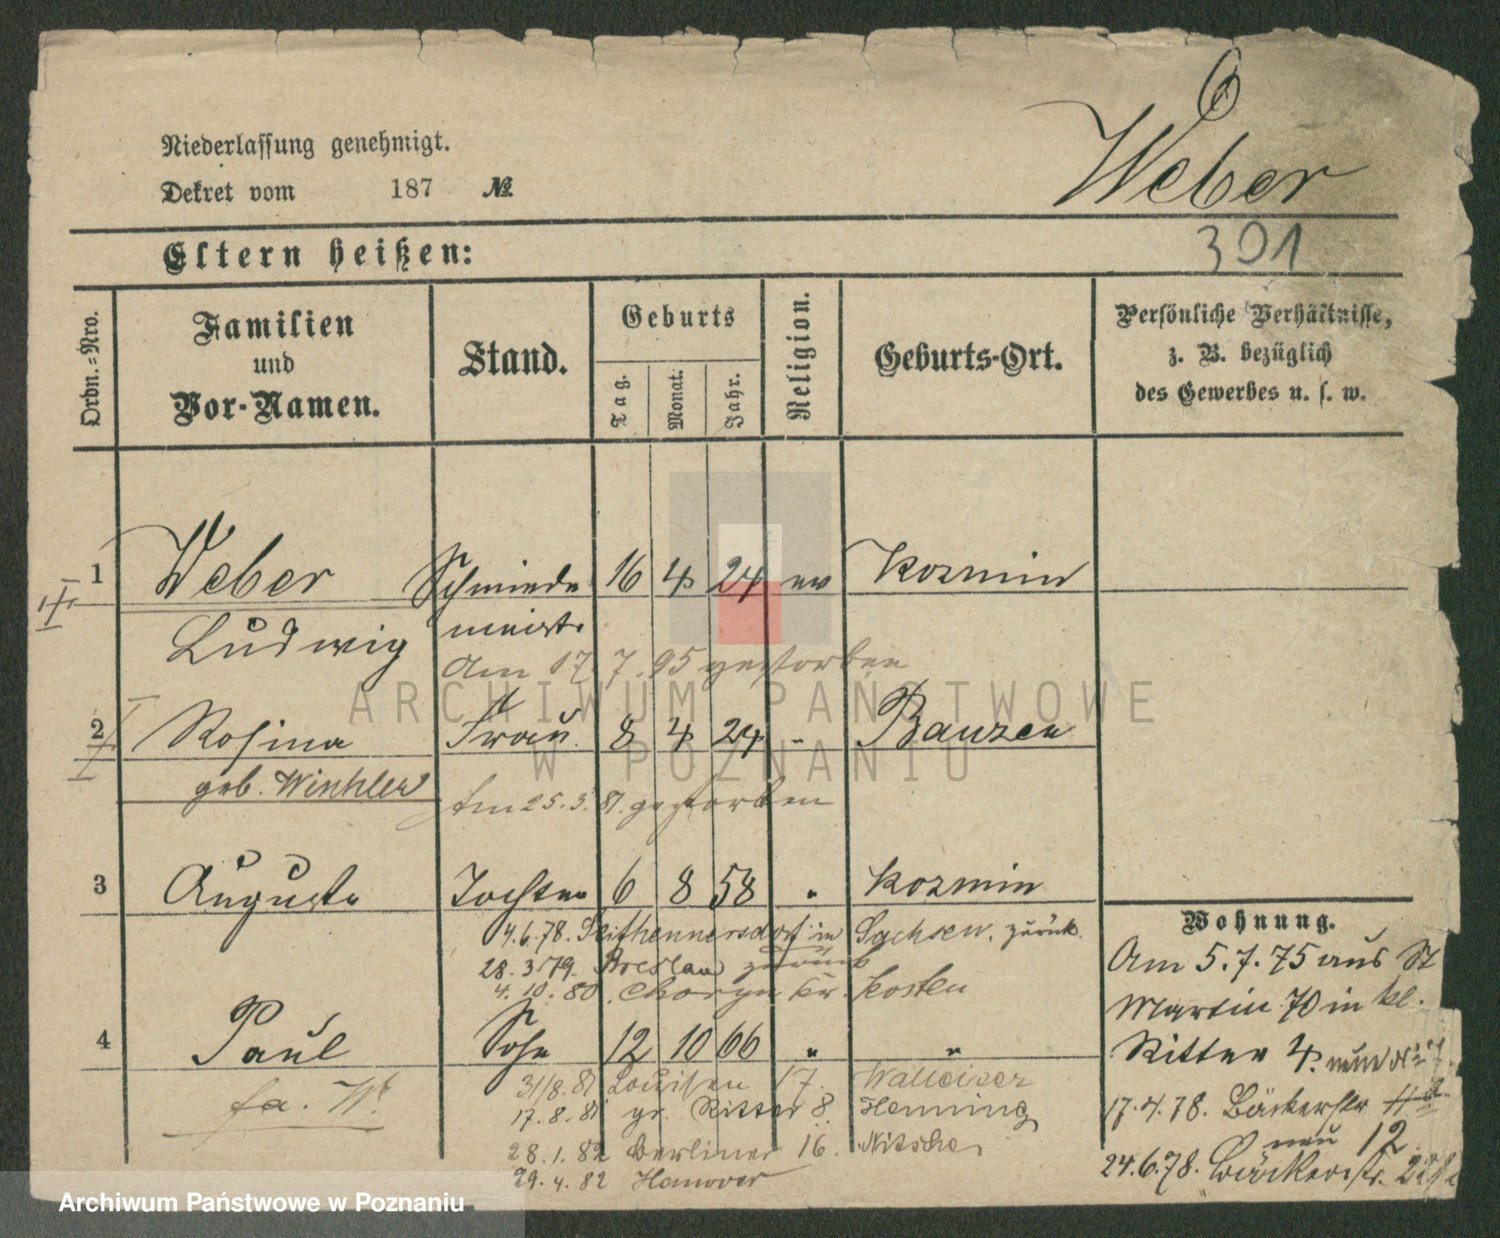 6
Weber
Niederlassung genehmigt.
Dekret vom 187 №
391
Eltern heißen:
Ordn.=Nro.
Familien
und
Vor-Namen.
Stand.
Geburts
Tag.
Monat.
Jahr.
Religion.
Geburts-Ort.
Persönliche Verhältnisse,
z. B. bezüglich
des Gewerbes u. s. w.
1 Weber Schmiede 16 4 24 ev Kozmin
Ludwig meistr
Am 17.7.95 gestorben
2 Rosina Frau 8 4 24 - Bauzen
geb. Winkler
Am 25.3.81. gestorben
3 Auguste Tochter 6 8 58 " Kozmin
4.6.78. Seifhennersdorf in Sachsen. zurück.
28.3.79. Breslau zurück
4.10.80. Kr. Kosten
4 Paul Sohn 12 10 66 " "
fa. W.
31/8.81 Louisen 17.
17.8.81 gr. Ritter 8. Henning
28.1.82 Berliner 16. Nitsche
29.4.82 Hanover
Wohnung.
Am 5.7.75 aus St
Martin 70 in kl.
Ritter 4.
17.4.78. Bäckerstr
neu 12
24.6.78. Bäckerstr.
ARCHIWUM PAŃSTWOWE
W POZNANIU
Archiwum Państwowe w Poznaniu